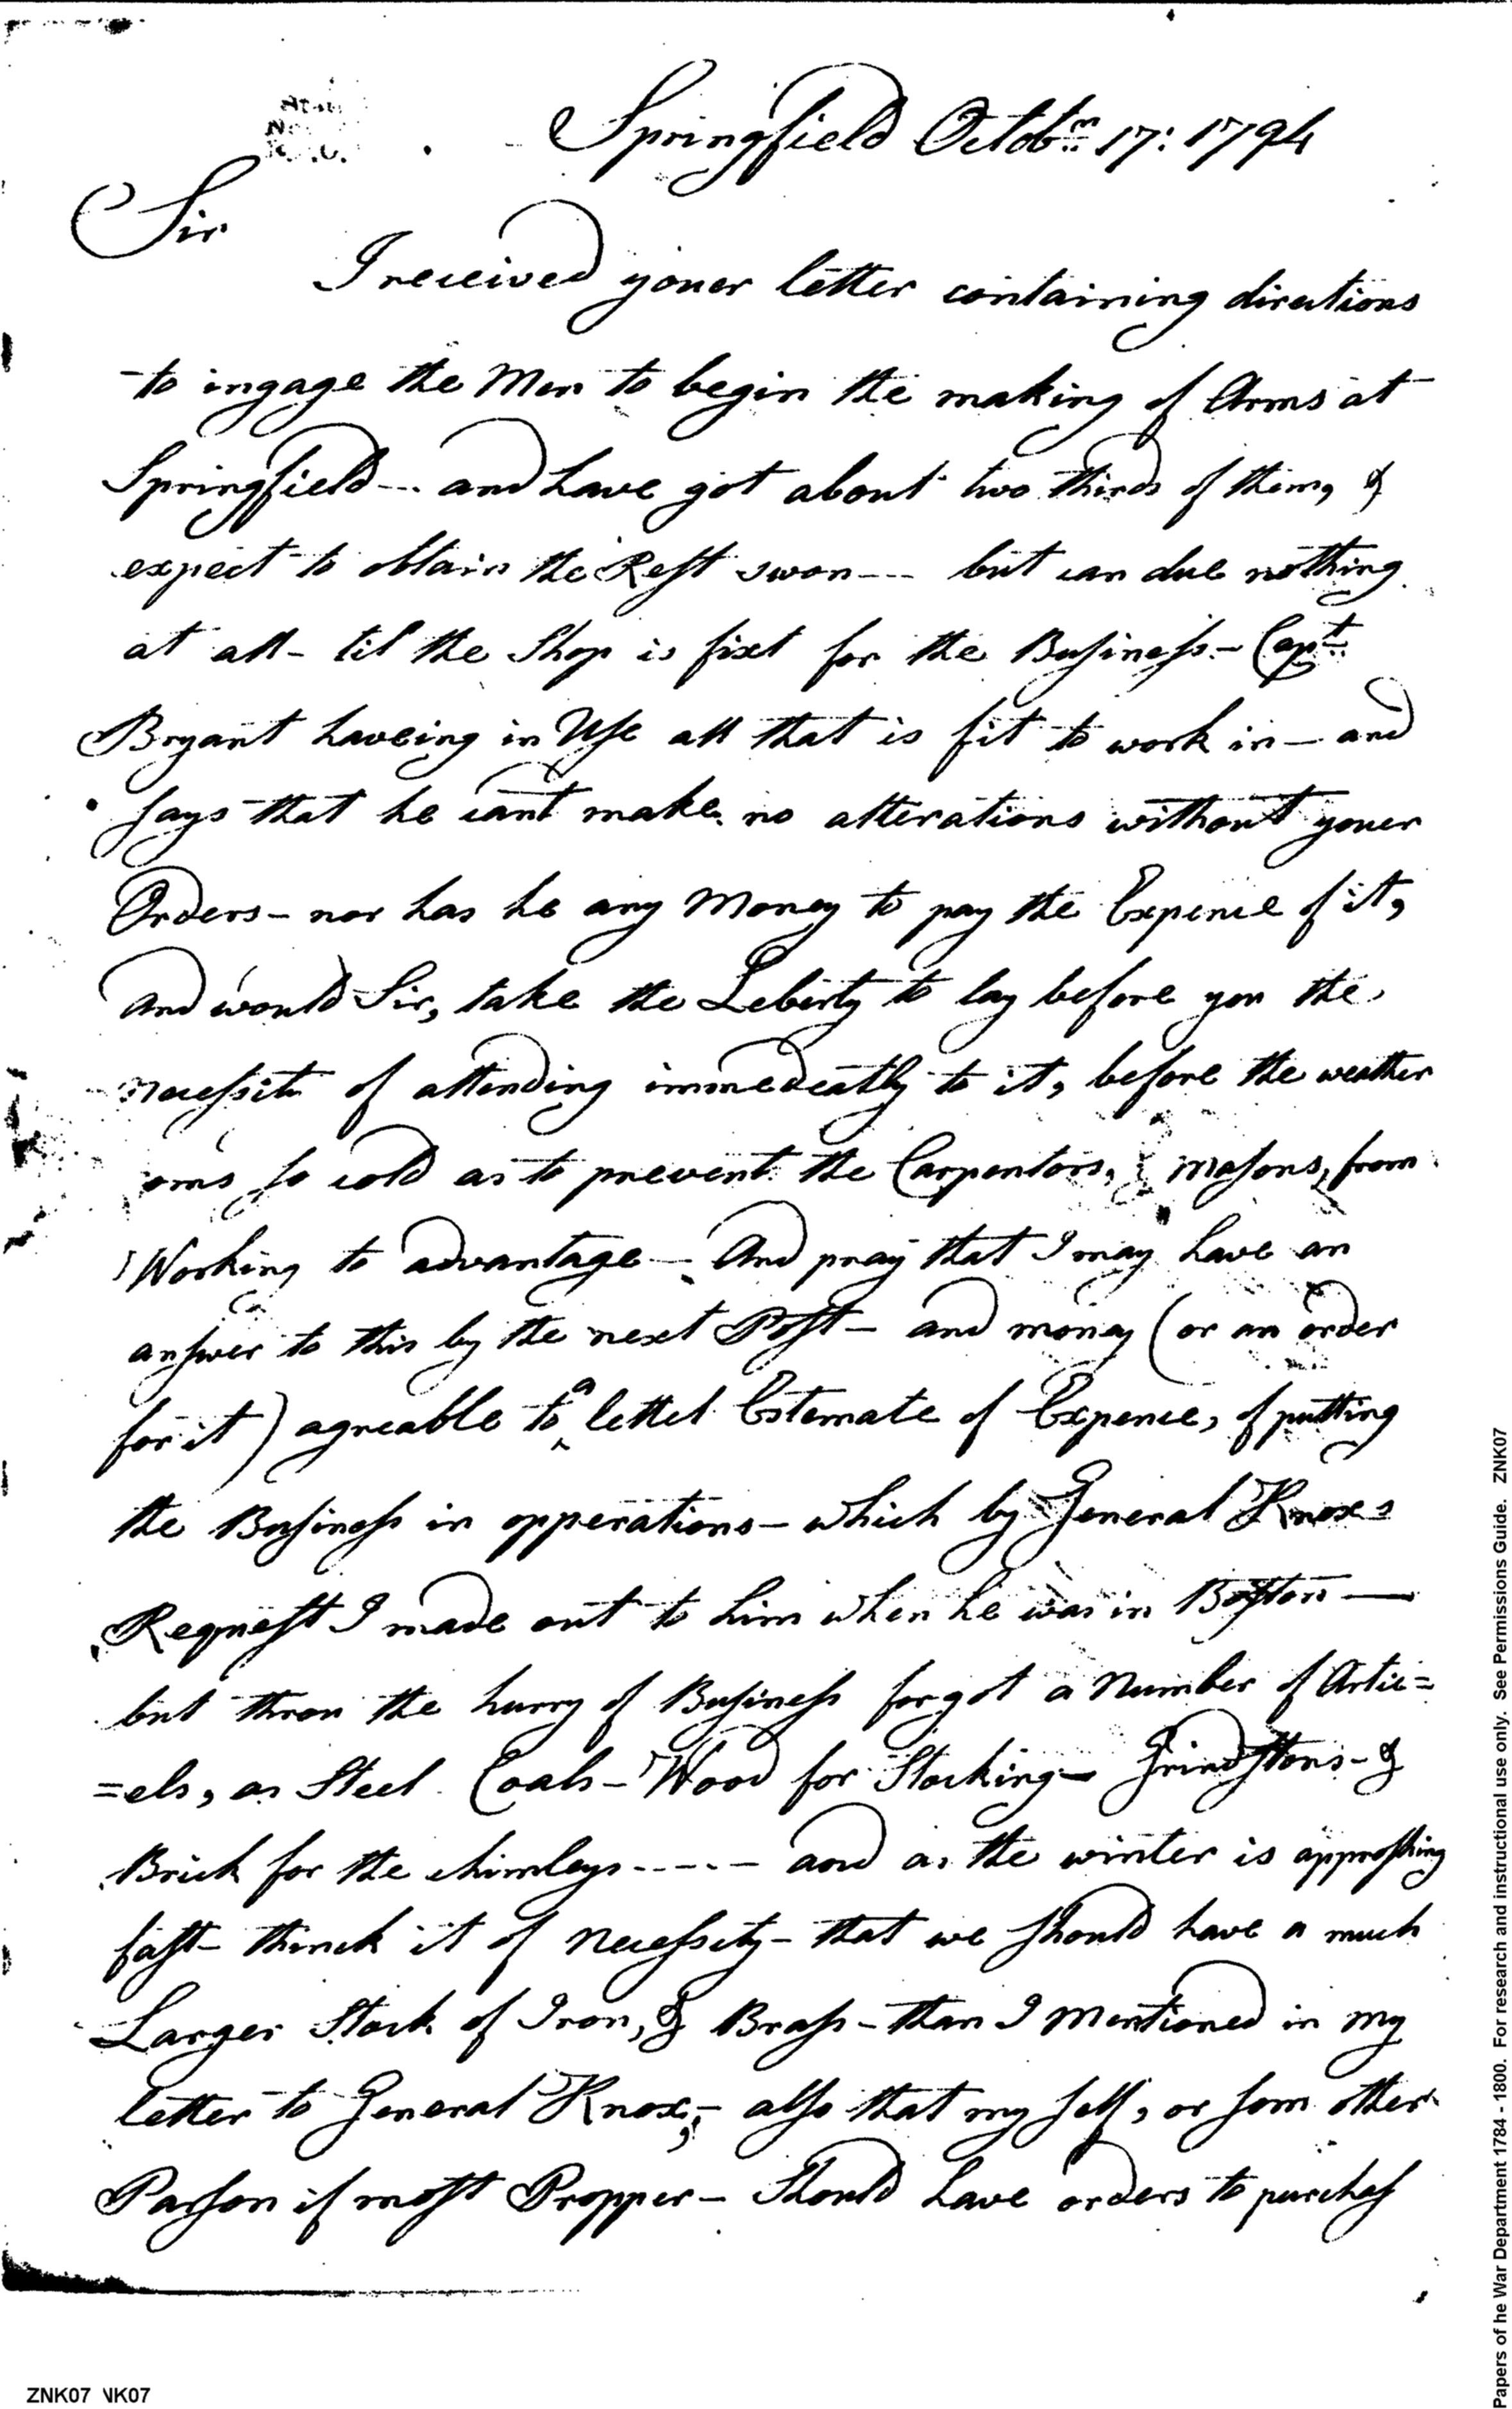 Springfield Octobr 17: 1794
Sir
I received youer letter containing directions
to ingage the Men to begin the making of Arms at
Springfield--- and have got about two thirds of them, &
expect to obtain the Rest swon--- but can due nothing
at all- til the Shop is fixt for the Business- Capt
Bryant haveing in Use all that is fit to work in- and
says that he cant make no alterations without youer
Orders- nor has he any Money to pay the Expence of it,
and would Sir, take the Leberty to lay before you the
necessity of attending immedeatly to it, before the weather
coms so cold as to prevent the Carpentors, & masons, from
Working to advantage- And pray that I may have an
answer to this by the next Post- and money (or an order
for it) agreable to a lettel Estemate of Expence, of putting
the Business in opperations- which by General Knoxs
Request I made out to him when he was in Boston-
but throu the hurry of Business forgot a Number of Artic=
=els, as Steel Coals- Wood for Stocking- Grindstons- &
Brick for the chimleys----- and as the winter is approshing
fast- thinck it of Necessity- that we should have a much
Larger Stock of Iron, & Brass- than I Mentioned in my
letter to General Knox;- also that my self, or som other
Parson if most Propper- Should have orders to purchas
ZNK07
Papers of he War Department 1784 - 1800. For research and instructional use only. See Permissions Guide. ZNK07